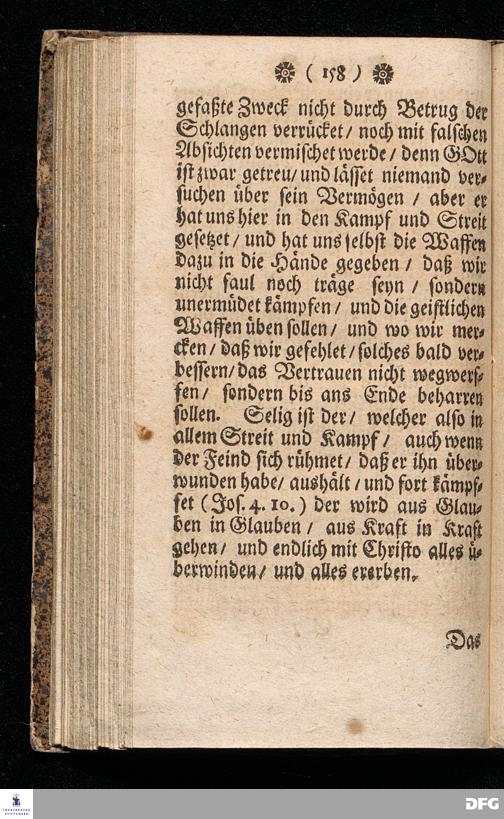 ( 158 )
gefaßte Zweck nicht durch Betrug der
Schlangen verrücket / noch mit falschen
Absichten vermischet werde / denn GOtt
ist zwar getreu / und lässet niemand ver-
suchen über sein Vermögen / aber er
hat uns hier in den Kampf und Streit
gesetzet / und hat uns selbst die Waffen
dazu in die Hände gegeben / daß wir
nicht faul noch träge seyn / sondern
unermüdet kämpfen / und die geistlichen
Waffen üben sollen / und wo wir mer-
cken / daß wir gefehlet / solches bald ver-
bessern / das Vertrauen nicht wegwerf-
fen / sondern bis ans Ende beharren
sollen. Selig ist der / welcher also in
allem Streit und Kampf / auch wenn
der Feind sich rühmet / daß er ihn über-
wunden habe / aushält / und fort kämpf-
fet (Jos. 4. 10.) der wird aus Glau-
ben in Glauben / aus Kraft in Kraft
gehen / und endlich mit Christo alles ü-
berwinden / und alles ererben.
Das
FRANCKESCHE STIFTUNGEN
DFG